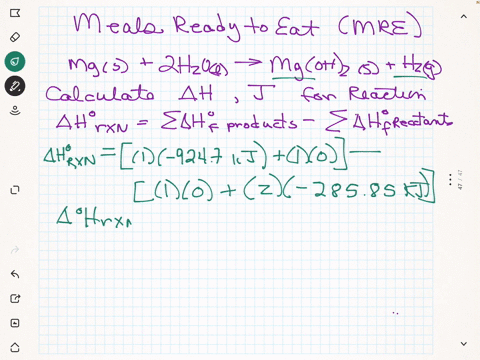 Meals Ready to Eat (MRE)
Mg(s) + 2H₂O(l) → Mg(OH)₂(s) + H₂(g)
Calculate ΔH, J for Reaction
ΔH°rxn = ΣΔH°f products - ΣΔH°f Reactants
ΔH°RXN = [(1)(-924.7 kJ) + (1)(0)] —
[(1)(0) + (2)(-285.85 kJ)]
Δ°Hrxn